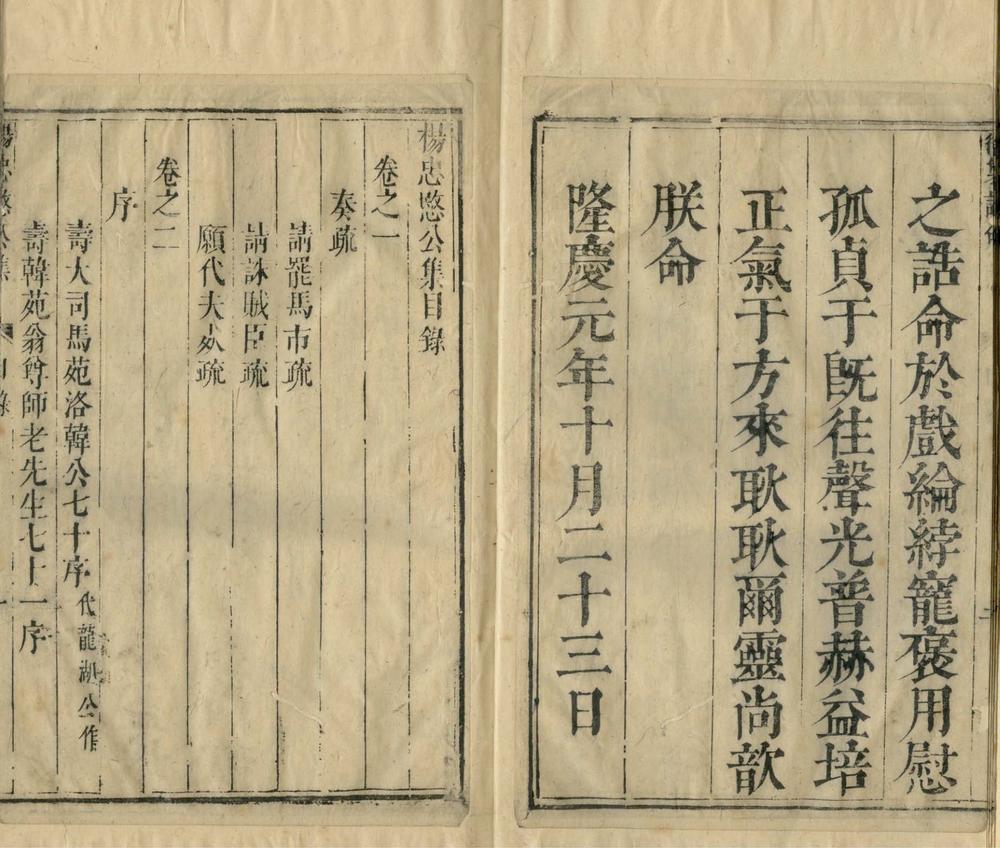 之誥命於戲綸綍寵褒用慰
孤貞于既往聲光普赫益培
正氣于方來耿耿爾靈尚歆
朕命
隆慶元年十月二十三日
楊忠愍公集目錄
卷之一
奏疏
請罷馬市疏
請誅賊臣疏
願代夫死疏
卷之二
序
壽大司馬苑洛韓公七十序 代龍湖公作
壽韓苑翁尊師老先生七十一序